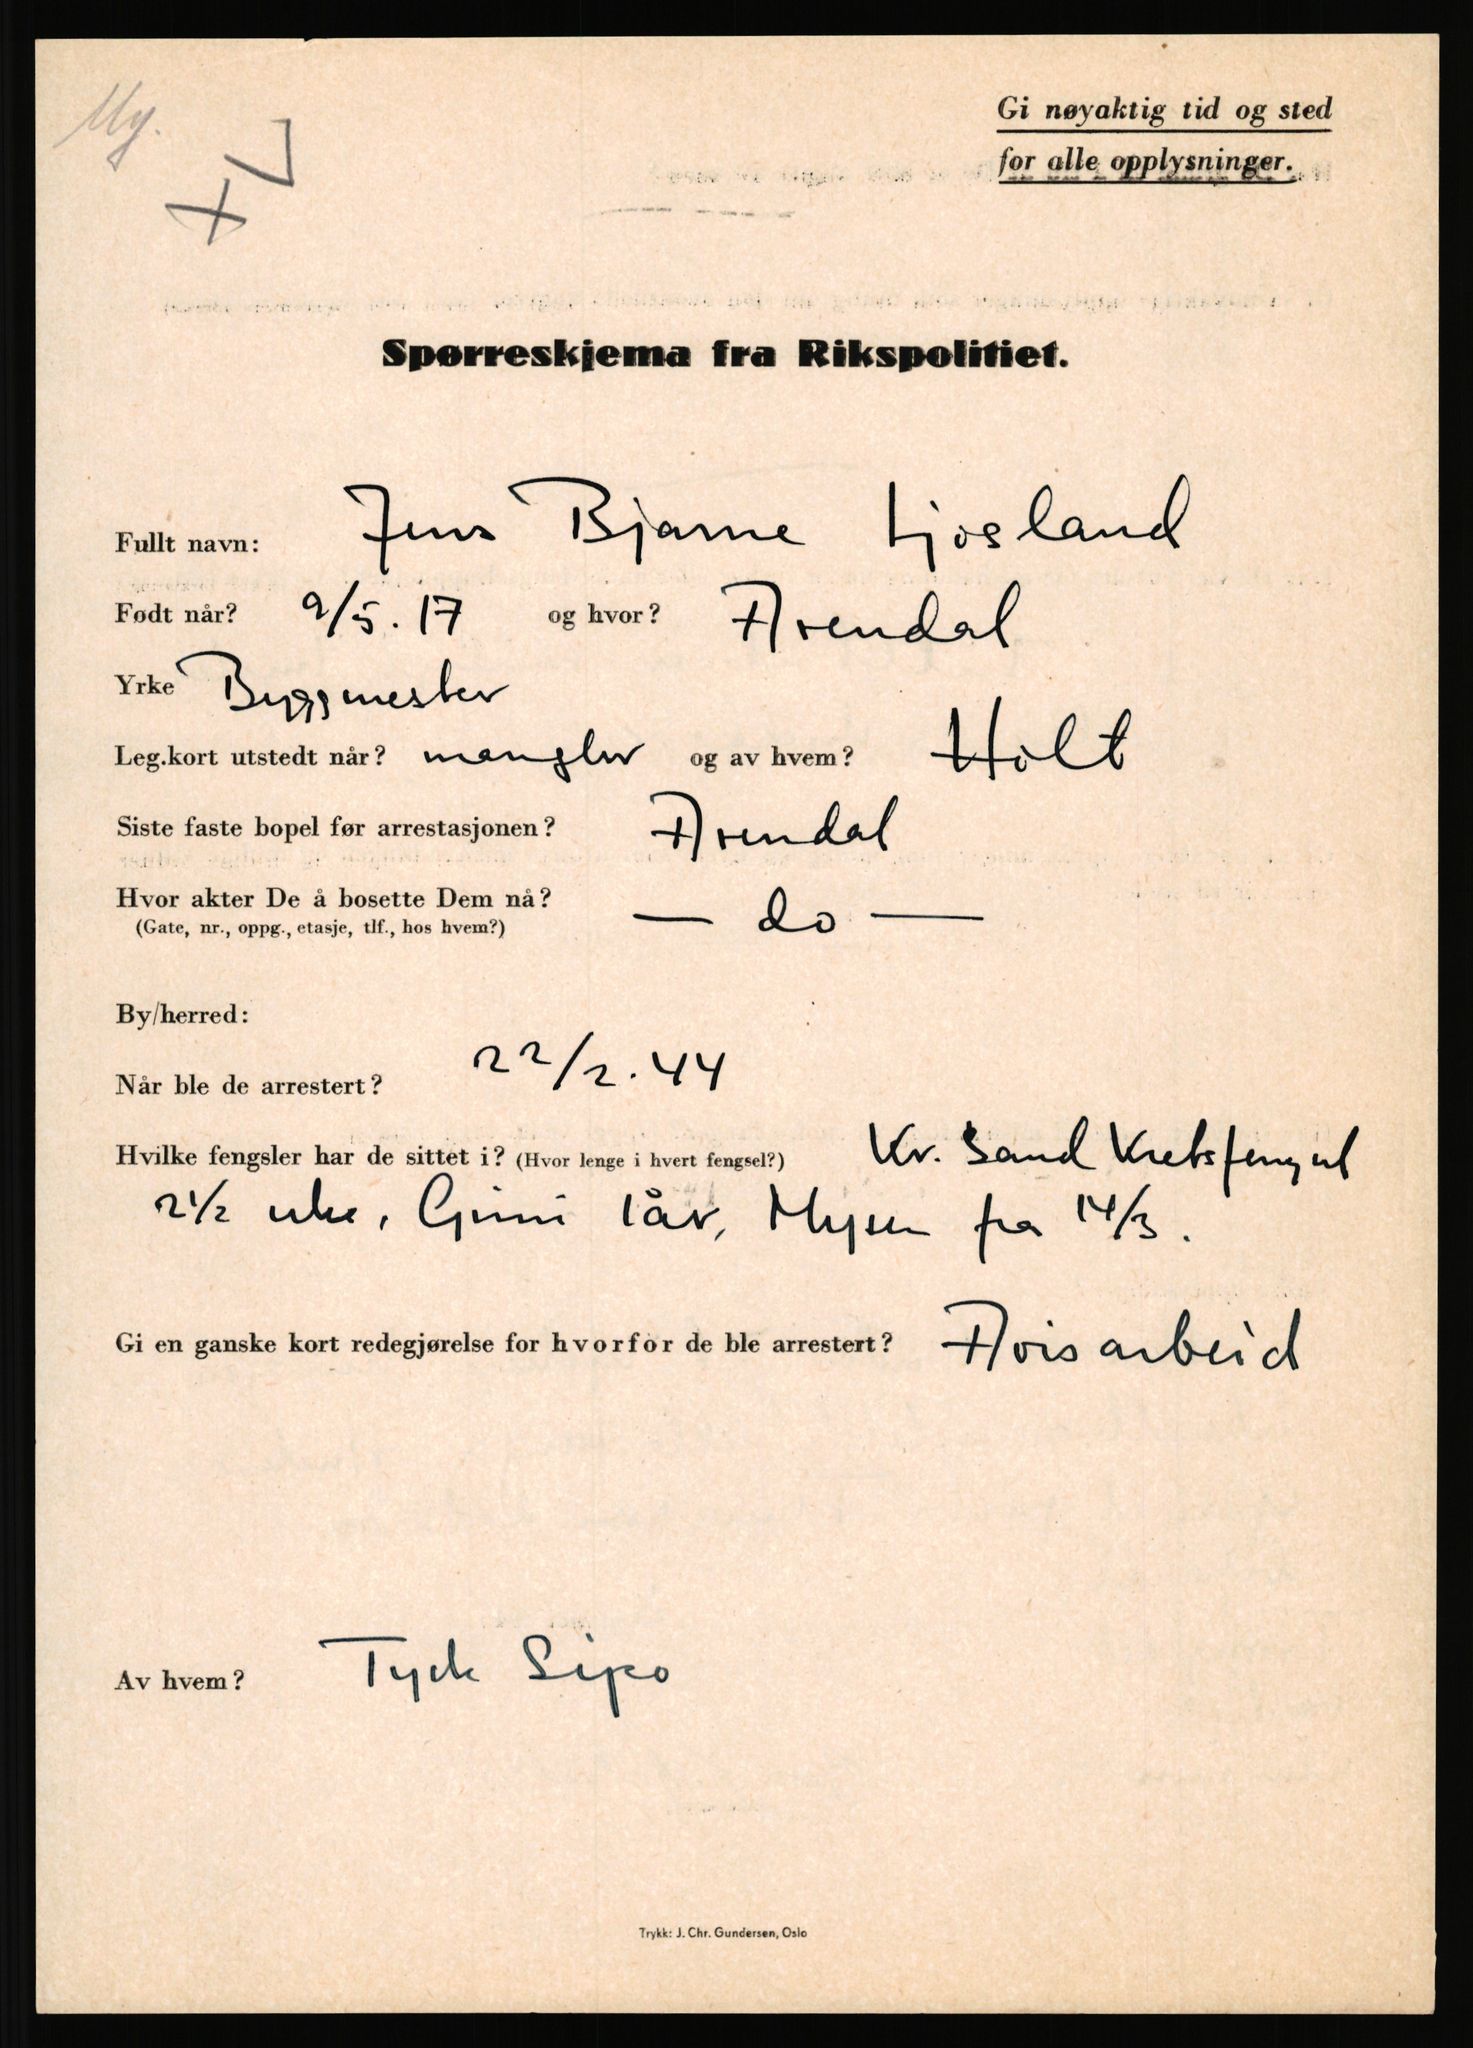 My.
Gi nøyaktig tid og sted
for alle opplysninger.
Spørreskjema fra Rikspolitiet.
Fullt navn: Jens Bjarne Ljosland
Født når? 9/5.17 og hvor? Arendal
Yrke Byggmester
Leg.kort utstedt når? mangler og av hvem? Holt
Siste faste bopel før arrestasjonen? Arendal
Hvor akter De å bosette Dem nå? — do —
(Gate, nr., oppg., etasje, tlf., hos hvem?)
By/herred:
Når ble de arrestert? 22/2.44
Hvilke fengsler har de sittet i? (Hvor lenge i hvert fengsel?) Kr. Sand Kretsfengsel
2 1/2 uke, Grini 1 år, Mysen fra 14/3.
Gi en ganske kort redegjørelse for hvorfor de ble arrestert? Avisarbeid
Av hvem? Tysk Sipo
Trykk: J. Chr. Gundersen, Oslo